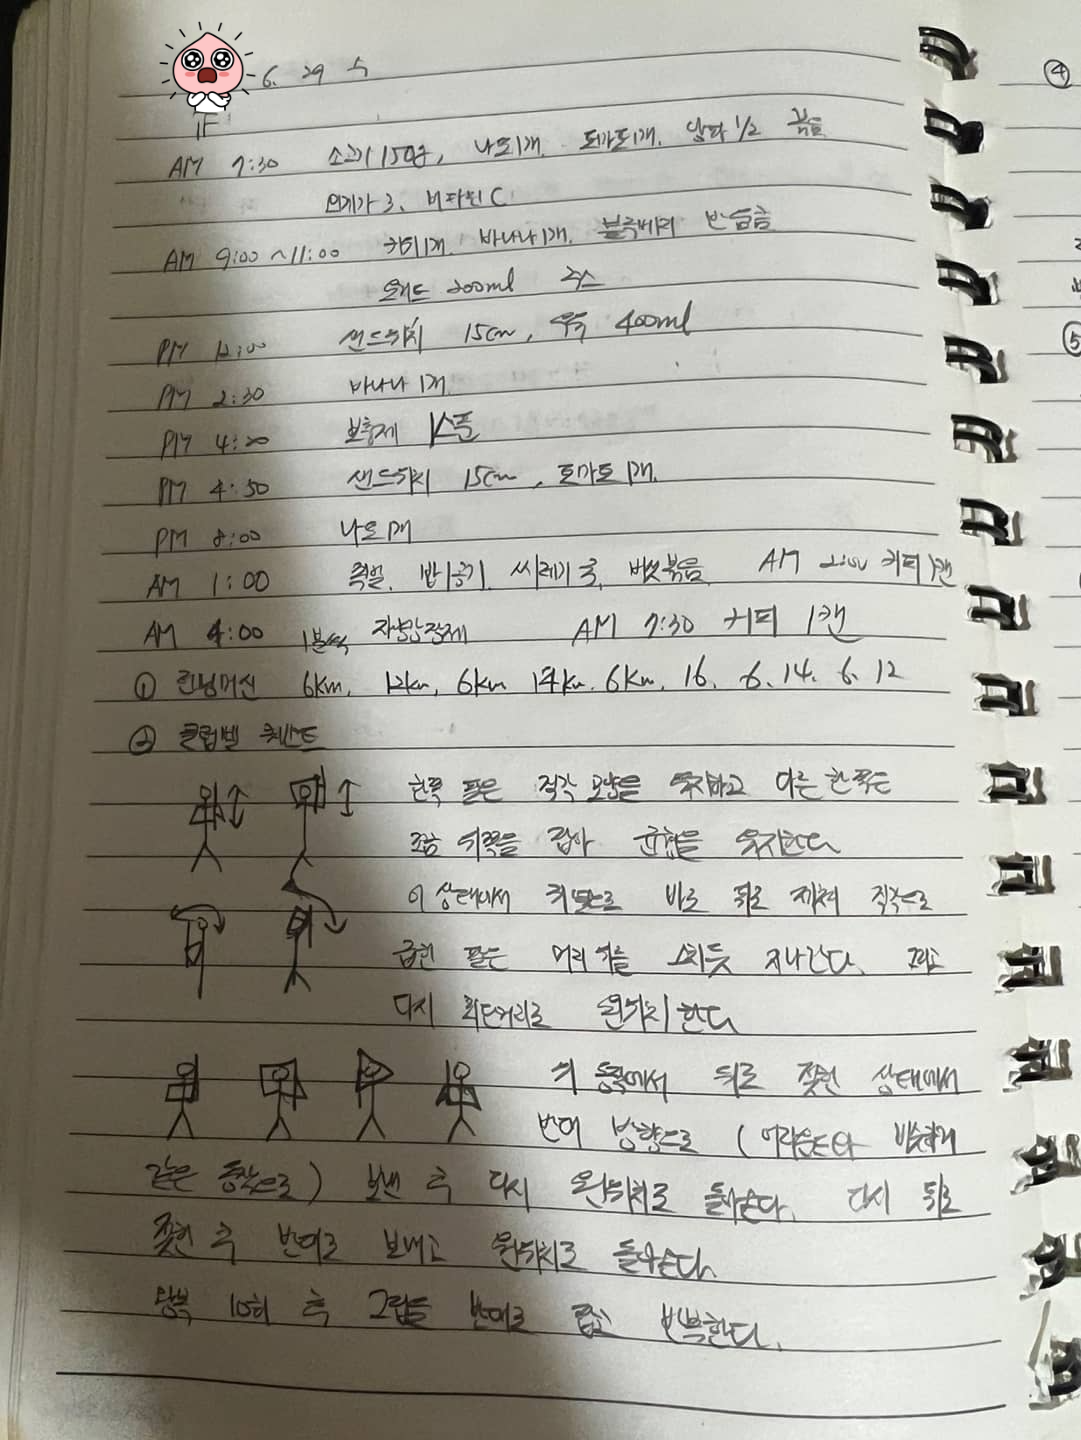 6. 29 수
AM 7:30 소고기 150g, 낫또1개, 토마토1개, 양파 1/2 볶음
오메가 3, 비타민C
AM 9:00 ~ 11:00 커피1개, 바나나1개, 블루베리 반움큼
200ml 쥬스
PM 12:00 샌드위치 15cm, 우유 400ml
PM 2:30 바나나 1개
PM 4:20 보충제 1스푼
PM 4:50 샌드위치 15cm, 토마토 1개.
PM 8:00 낫또 1개
AM 1:00 족발, 밥1공기, 씨레기국, 버섯볶음 AM 2:00 커피1캔
AM 4:00 AM 7:30 커피 1캔
① 런닝머신 6km, 12km, 6km 14km, 6km, 16, 6, 14, 6, 12
② 클럽벨
한쪽 팔은 직각 모양을 유지하고 다른 한쪽은
조금 위쪽을 잡아 균형을 유지한다
이 상태에서 바로 뒤로 제쳐 직각으로
굽힌 팔은 머리 위를 스치듯 지나간다. 그리고
다시 최단거리로 원위치한다
위 동작에서 뒤로 젖힌 상태에서
반대 방향으로 (어라운드와 비슷하게
같은 동작으로) 보낸 후 다시 원위치로 돌아온다. 다시 뒤로
젖힌 후 반대로 보내고 원위치로 돌아온다.
왕복 10회 후 그립을 반대로 잡고 반복한다.
④
⑤